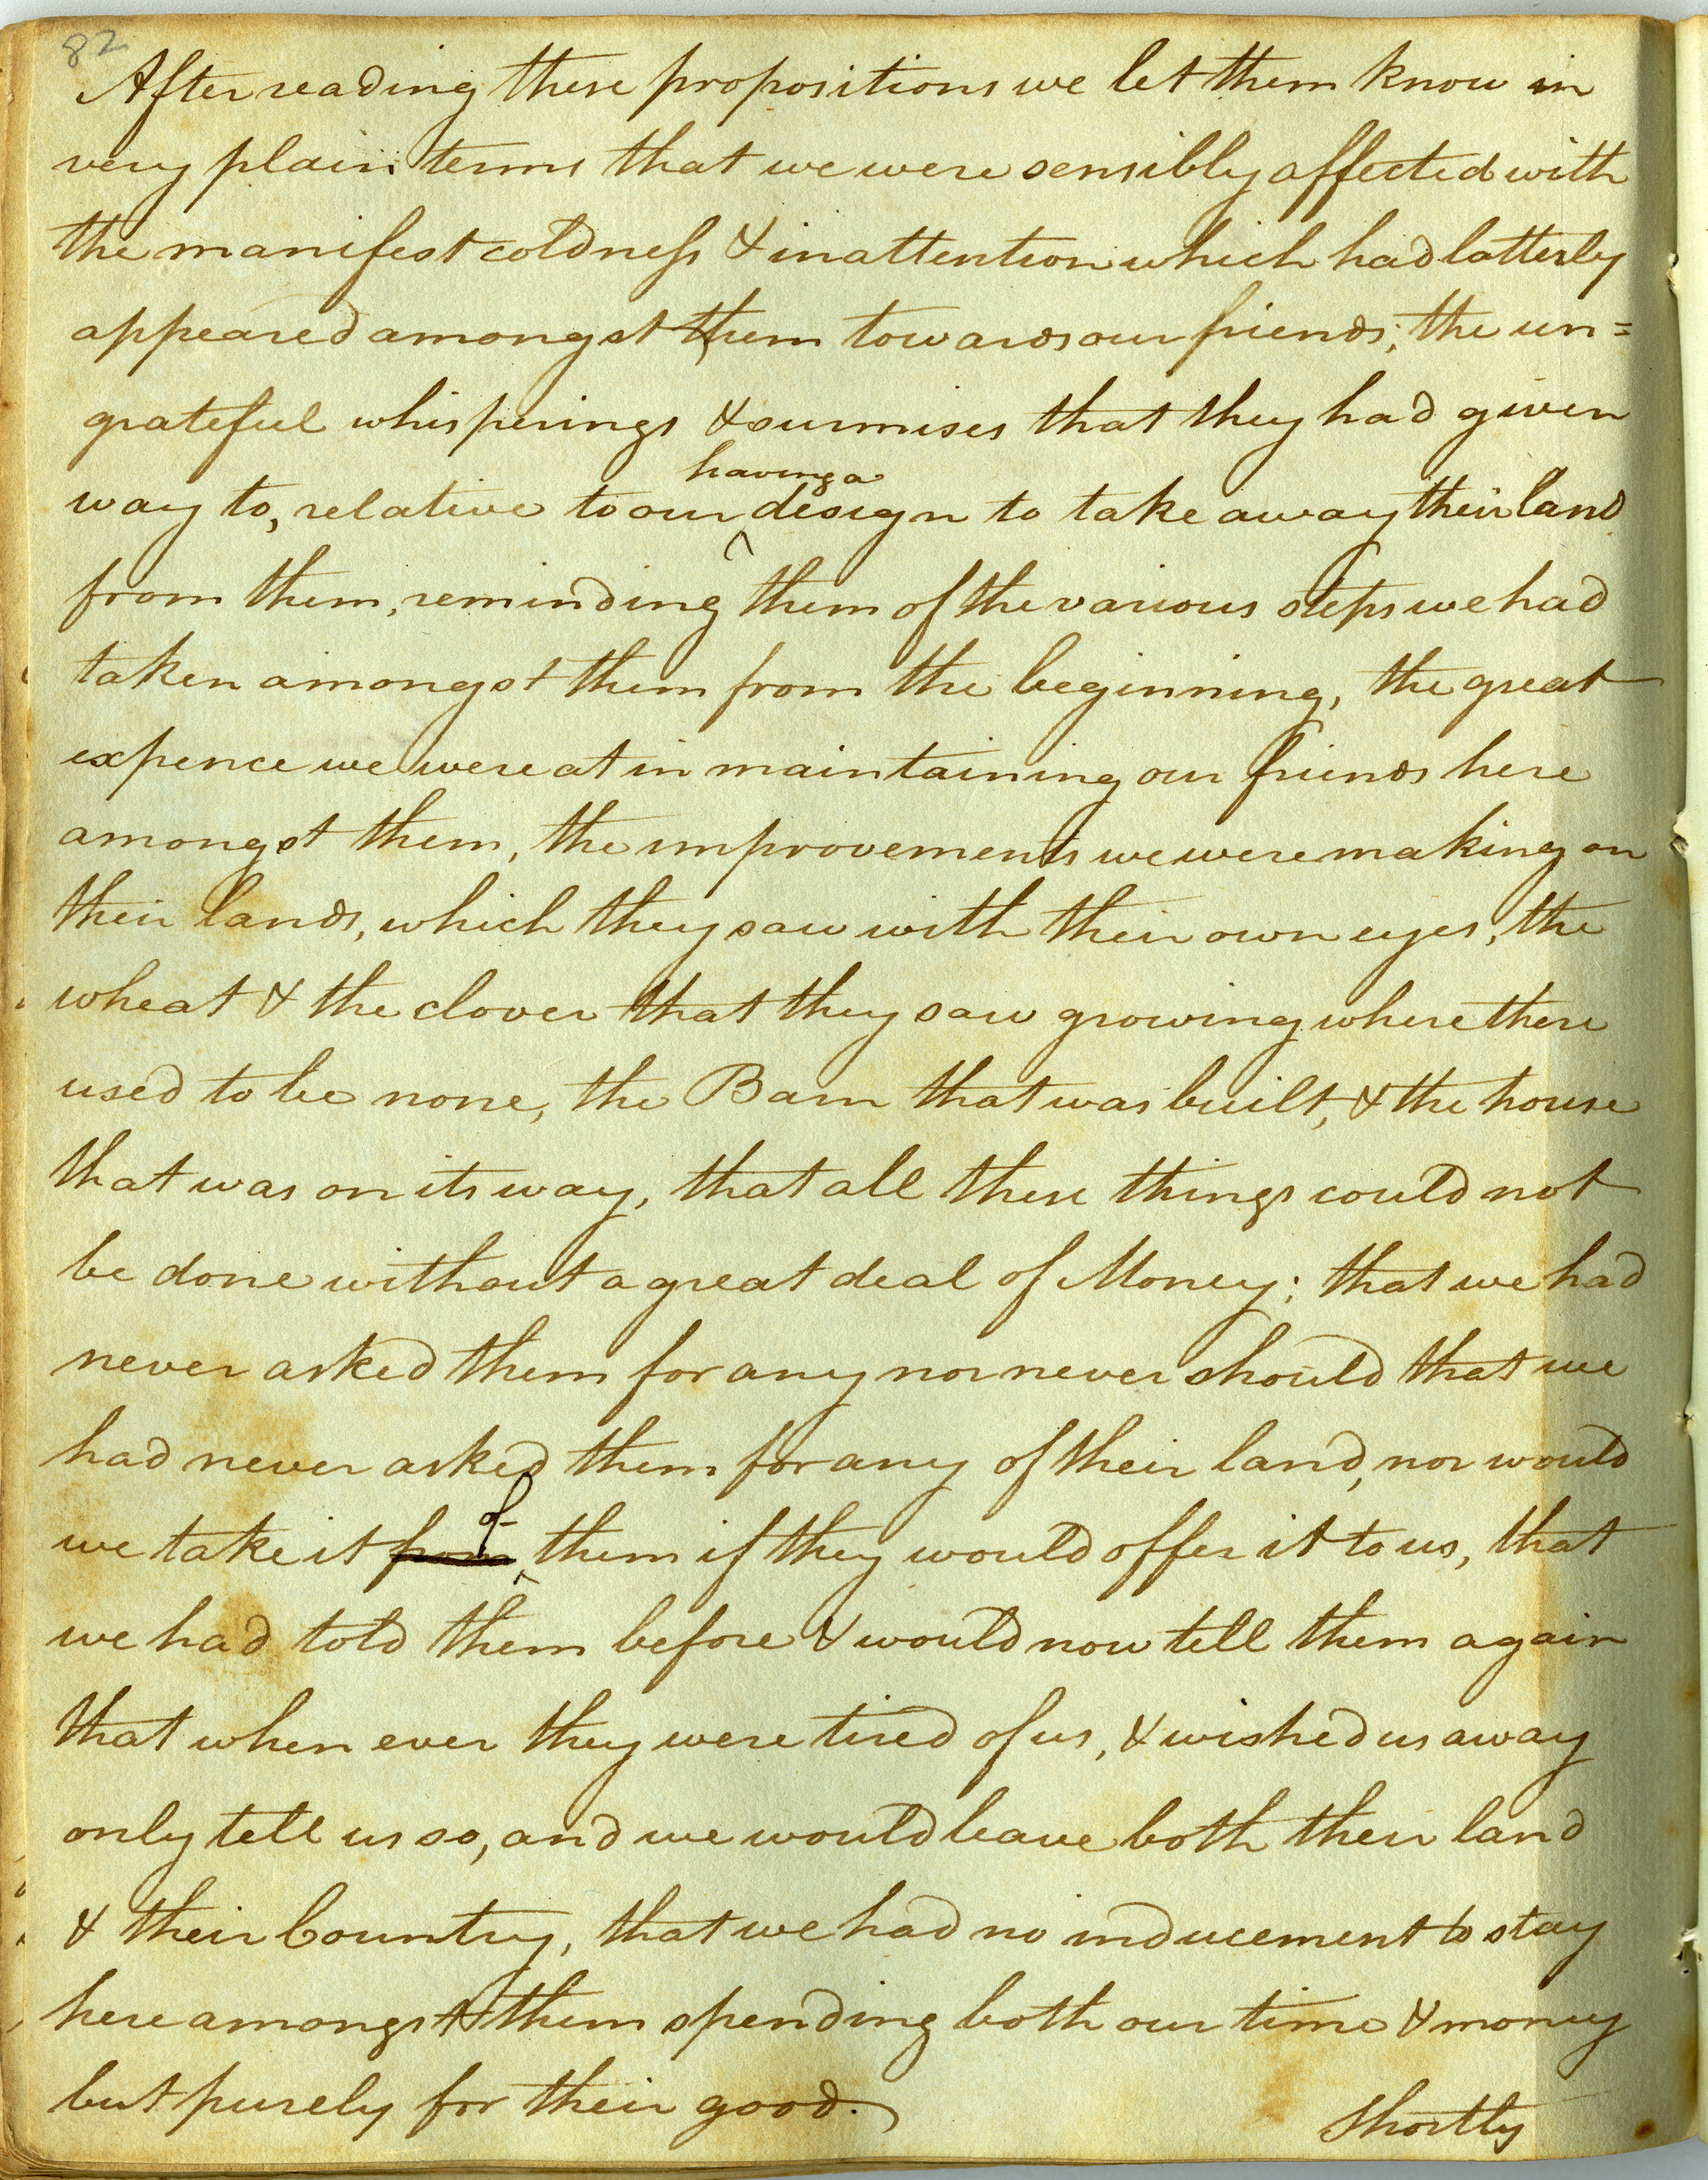 82
After reading these propositions we let them know in
very plain terms that we were sensibly affected with
the manifest coldneſs & inattention which had latterly
appeared amongst them towards our friends; the un=
grateful whisperings & surmises that they had given
having a
way to, relative to our ‸ design to take away their land
from them, reminding them of the various steps we had
taken amongst them from the beginning, the great
expence we were at in maintaining our friends here
amongst them, the improvements we were making on
their lands, which they saw with their own eyes, the
wheat & the clover that they saw growing where there
used to be none, the Barn that was built, & the house
that was on its way, that all these things could not
be done without a great deal of Money; that we had
never asked them for any nor never should that we
had never asked them for any of their land, nor would
of
we take it from ‸ them if they would offer it to us, that
we had told them before & would now tell them again
that when ever they were tired of us, & wished us away
only tell us so, and we would leave both their land
& their Country, that we had no inducement to stay
here amongst them spending both our time & money
but purely for their good.
Shortly